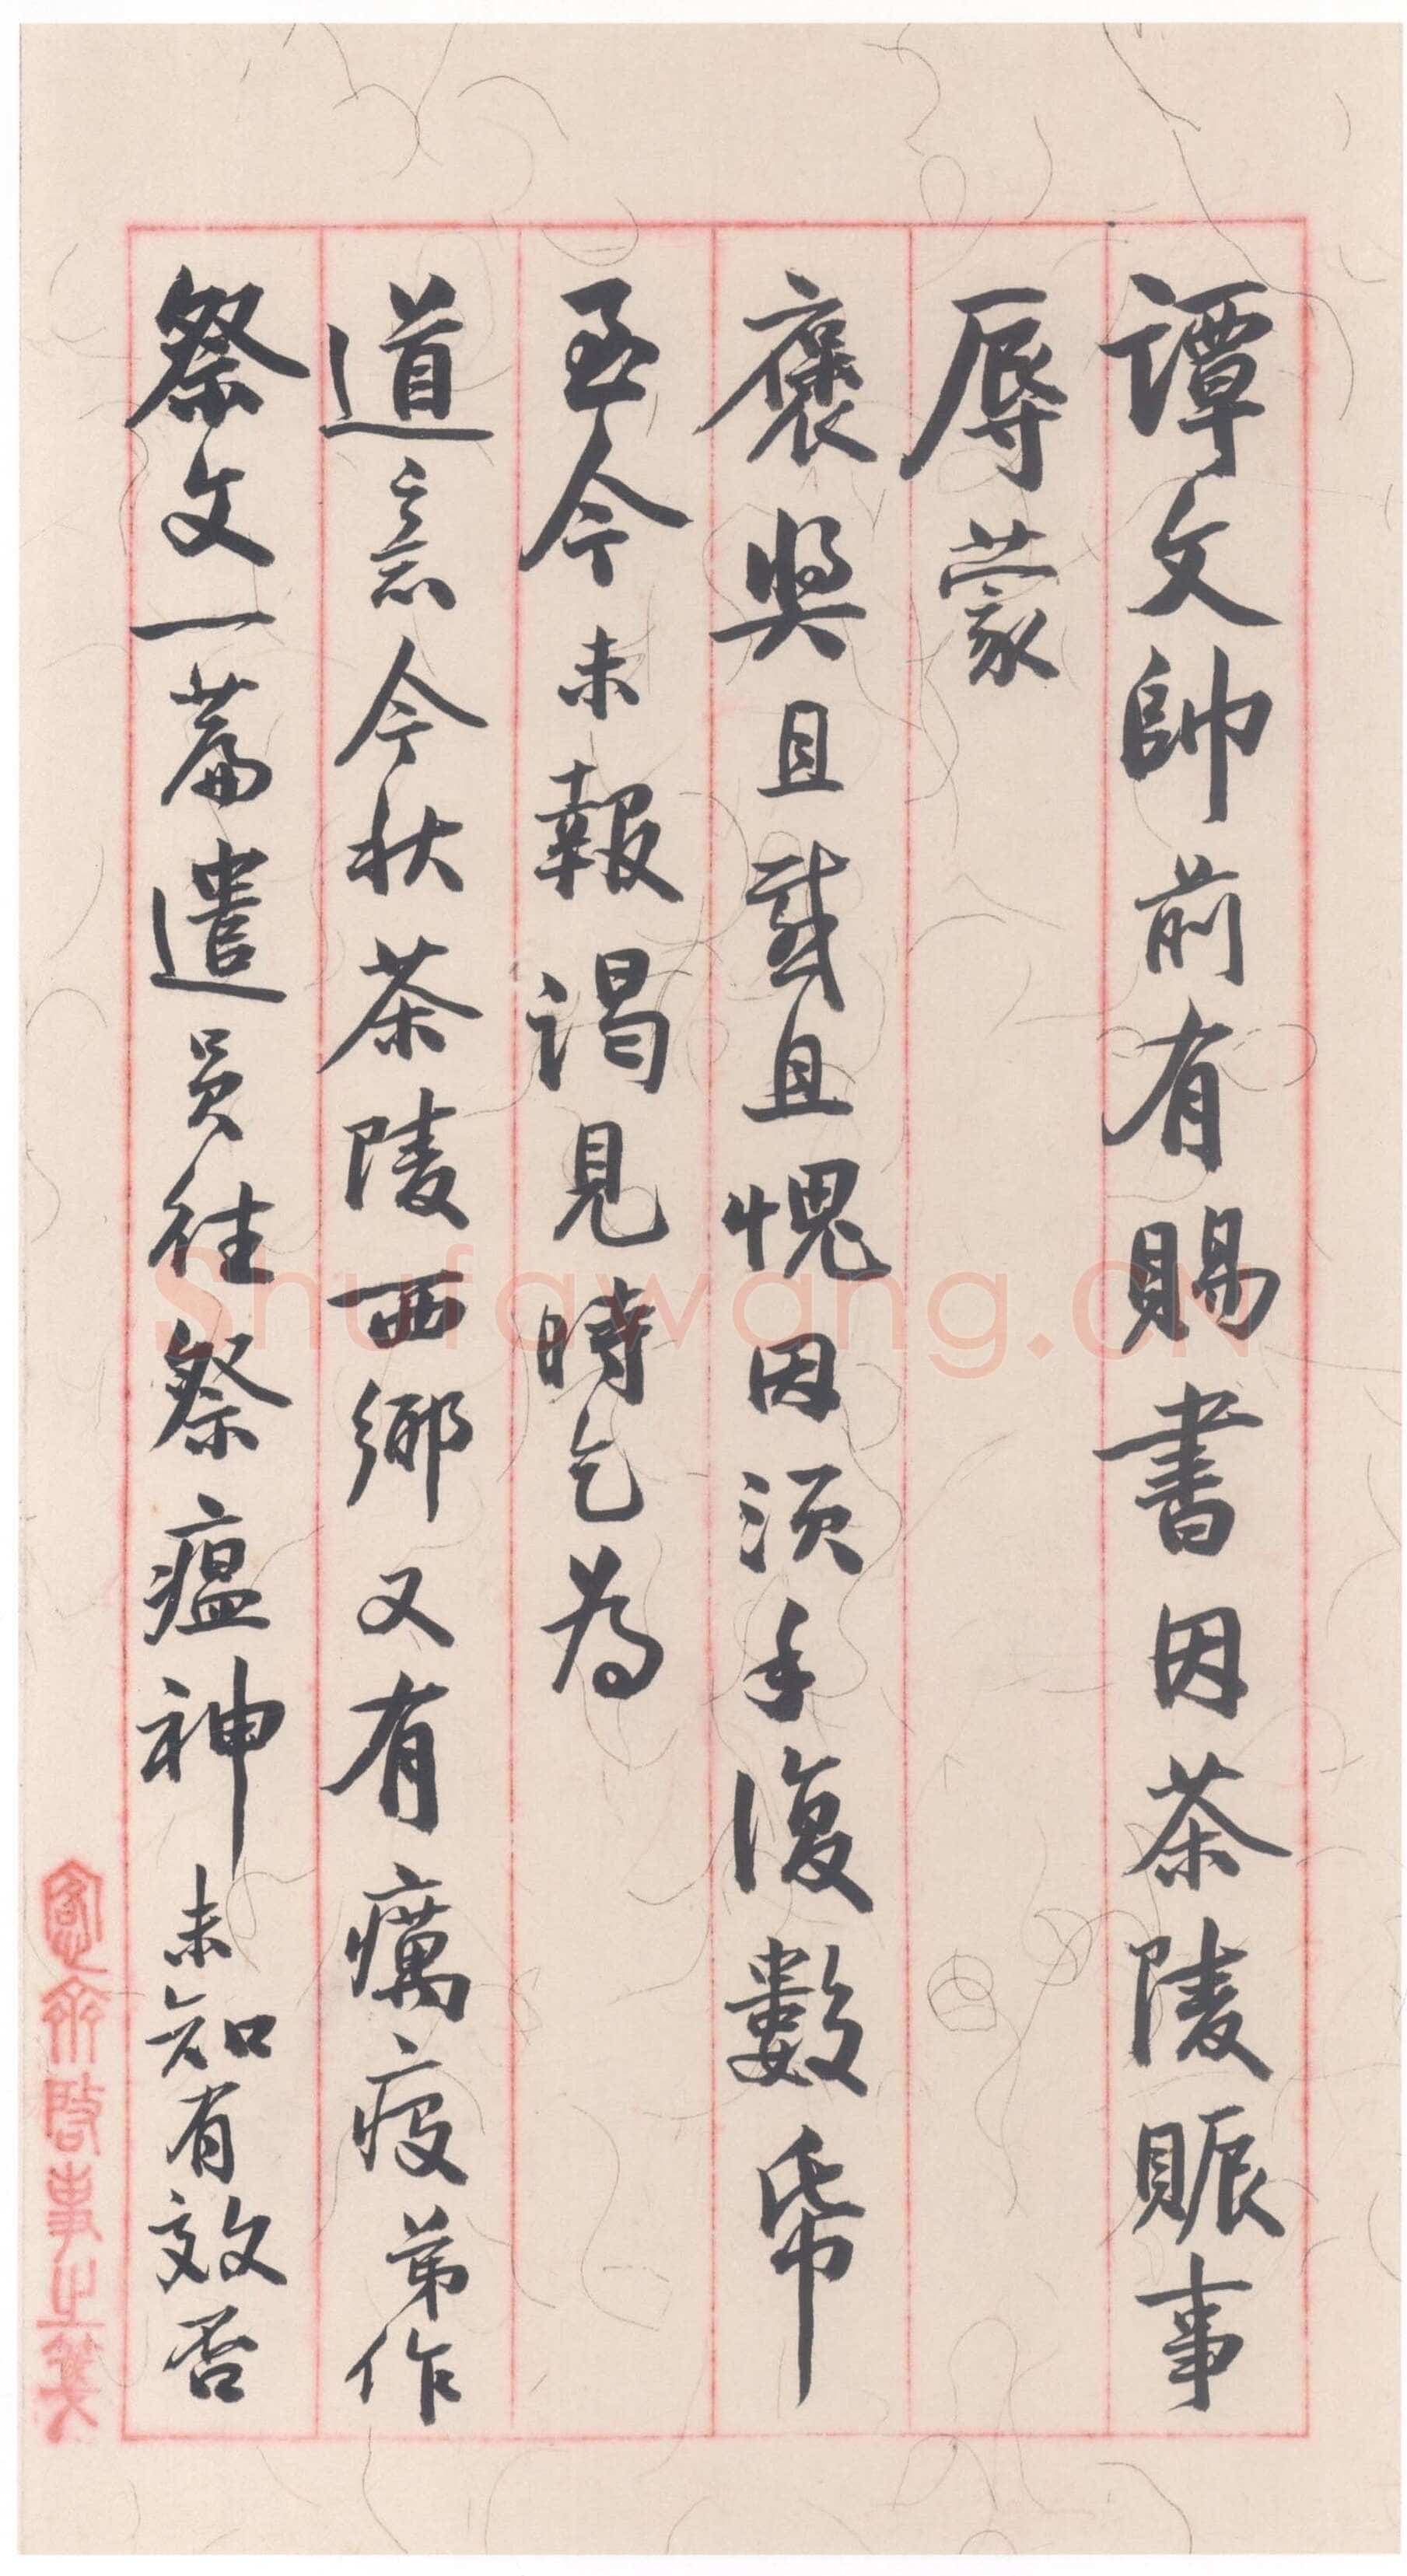 譚文帥前有賜書因茶陵賑事
辱蒙
褒奬且感且愧因須手復數帋
至今未報謁見時乞為
道意今秋茶陵西鄉又有癘疫弟作
祭文一篇遣員往祭瘟神未知有效否
愙齋啟事之箋
Shufawang.cn